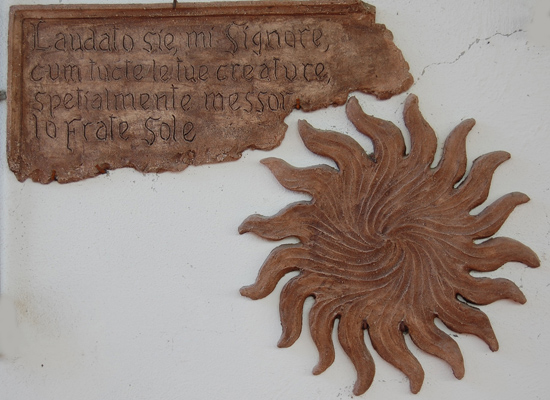 Laudato sie, mi Signore,
cum tucte le tue creature,
spetialmente messor
lo frate Sole